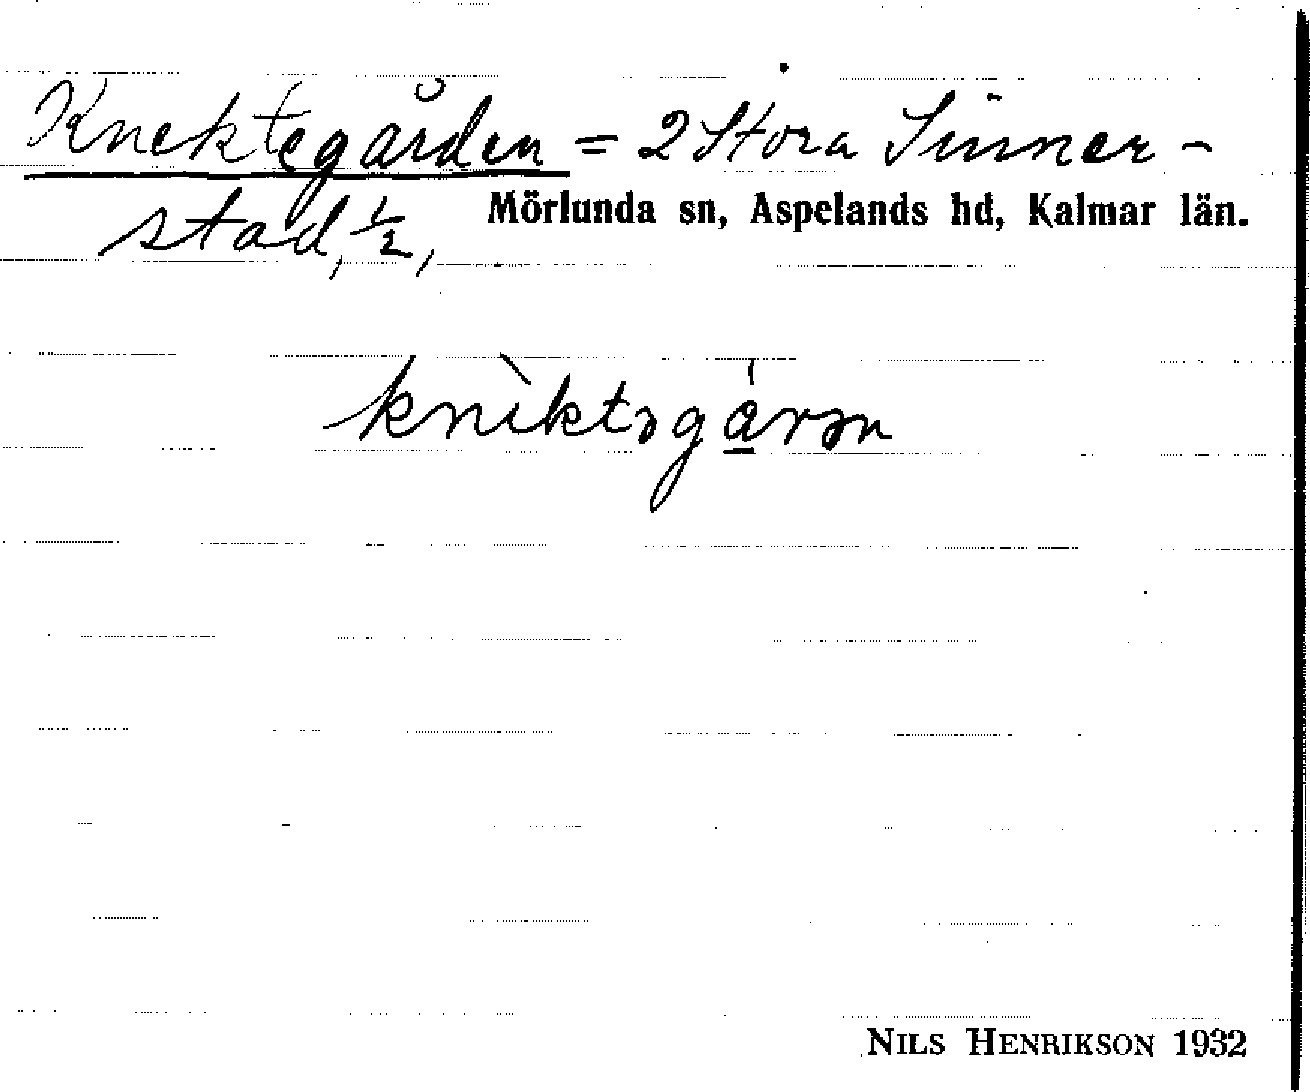 Knektegården = 2 Stora Sinner-
stad, 1/2,
Mörlunda sn, Aspelands hd, Kalmar län.
knìktəgårən
NILS HENRIKSON 1932